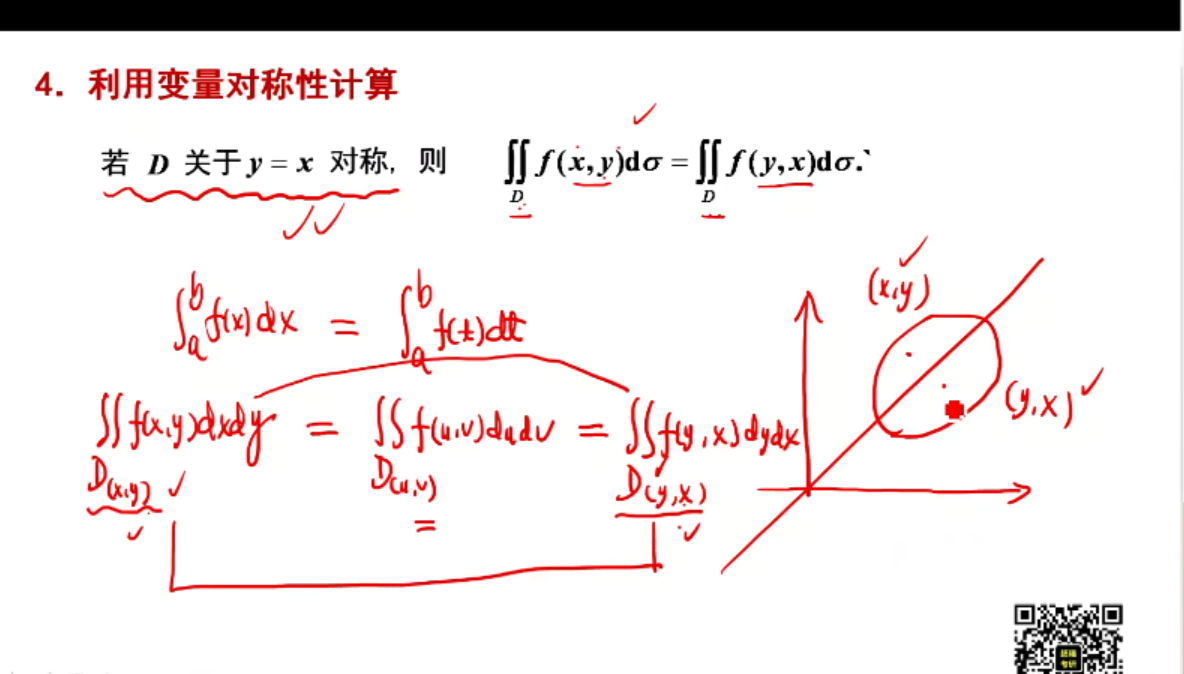 4. 利用变量对称性计算
若 D 关于 y = x 对称, 则 ∬_D f(x, y)dσ = ∬_D f(y, x)dσ.`
∫_a^b f(x)dx = ∫_a^b f(t)dt
(x,y)
(y,x)
∬_{D(x,y)} f(x,y)dxdy = ∬_{D(u,v)} f(u,v)dudv = ∬_{D(y,x)} f(y,x)dydx
=